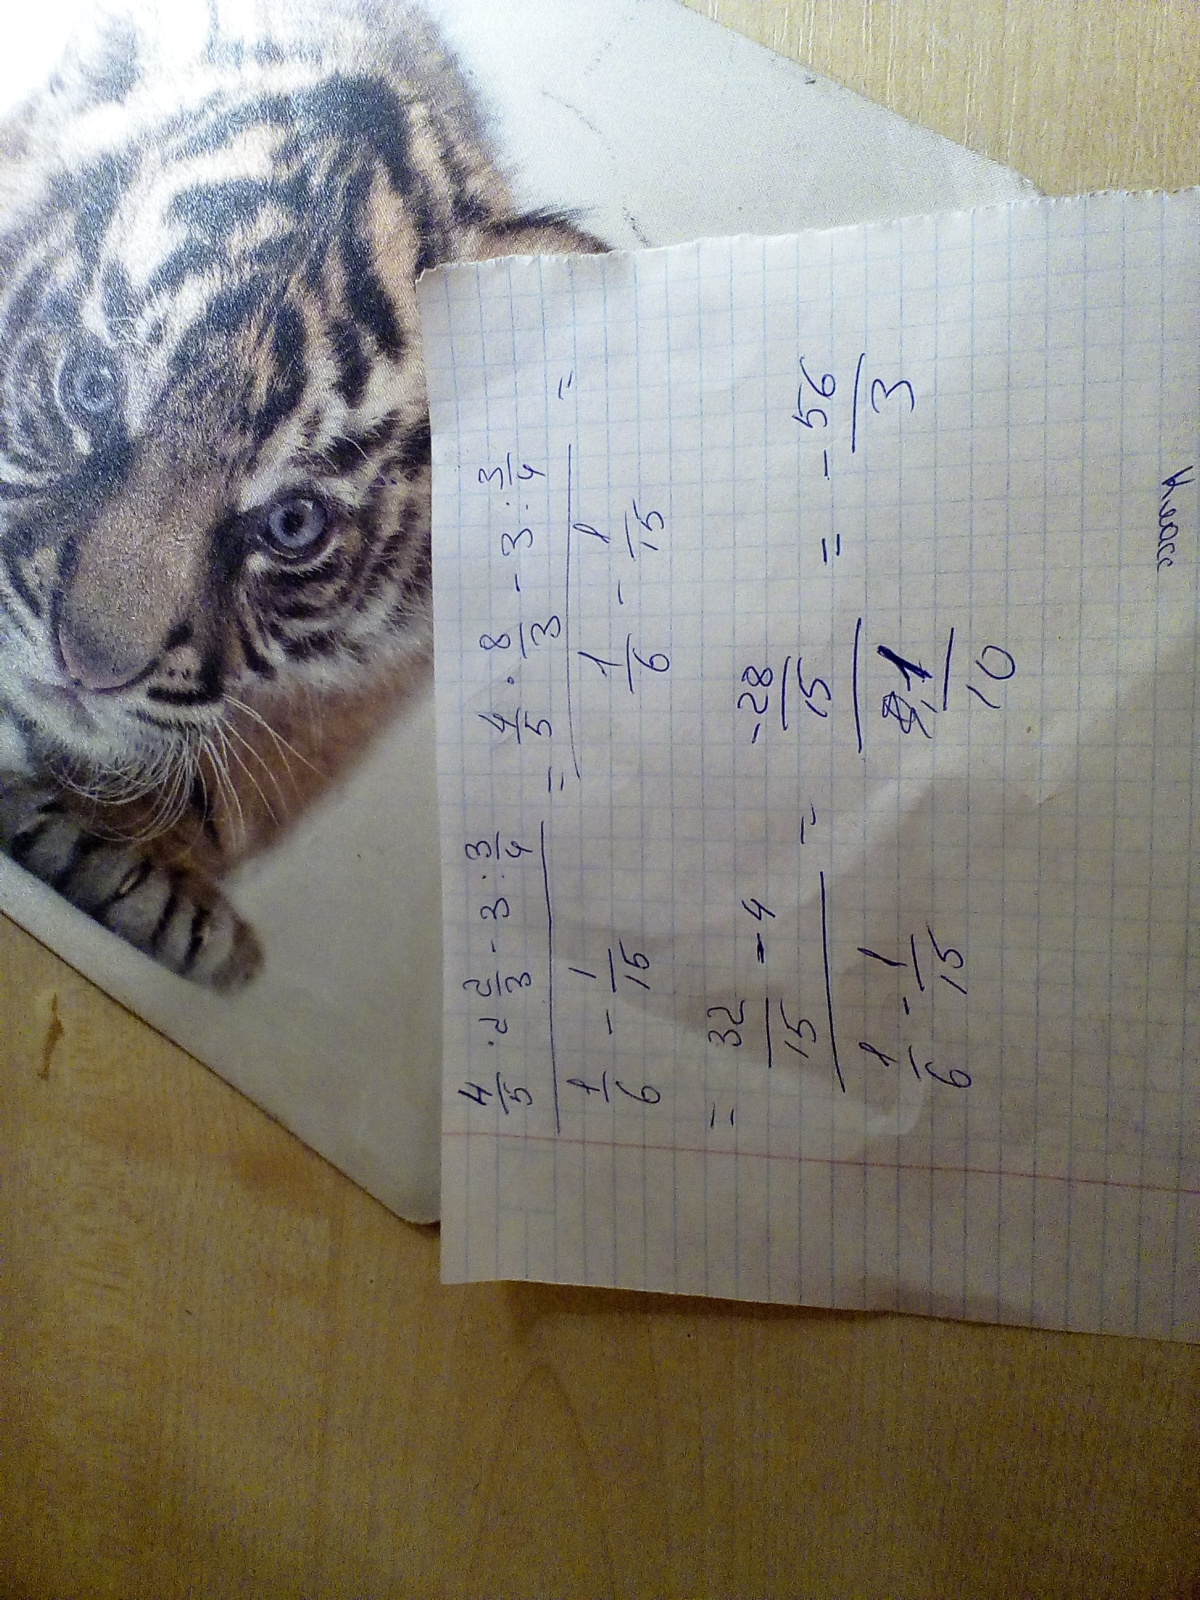 4/5 · 2 2/3 - 3 : 3/4 / 1/6 - 1/15 = 4/5 · 8/3 - 3 : 3/4 / 1/6 - 1/15 =
= 32/15 - 4 / 1/6 - 1/15 = -28/15 / 1/10 = -56/3
Класс